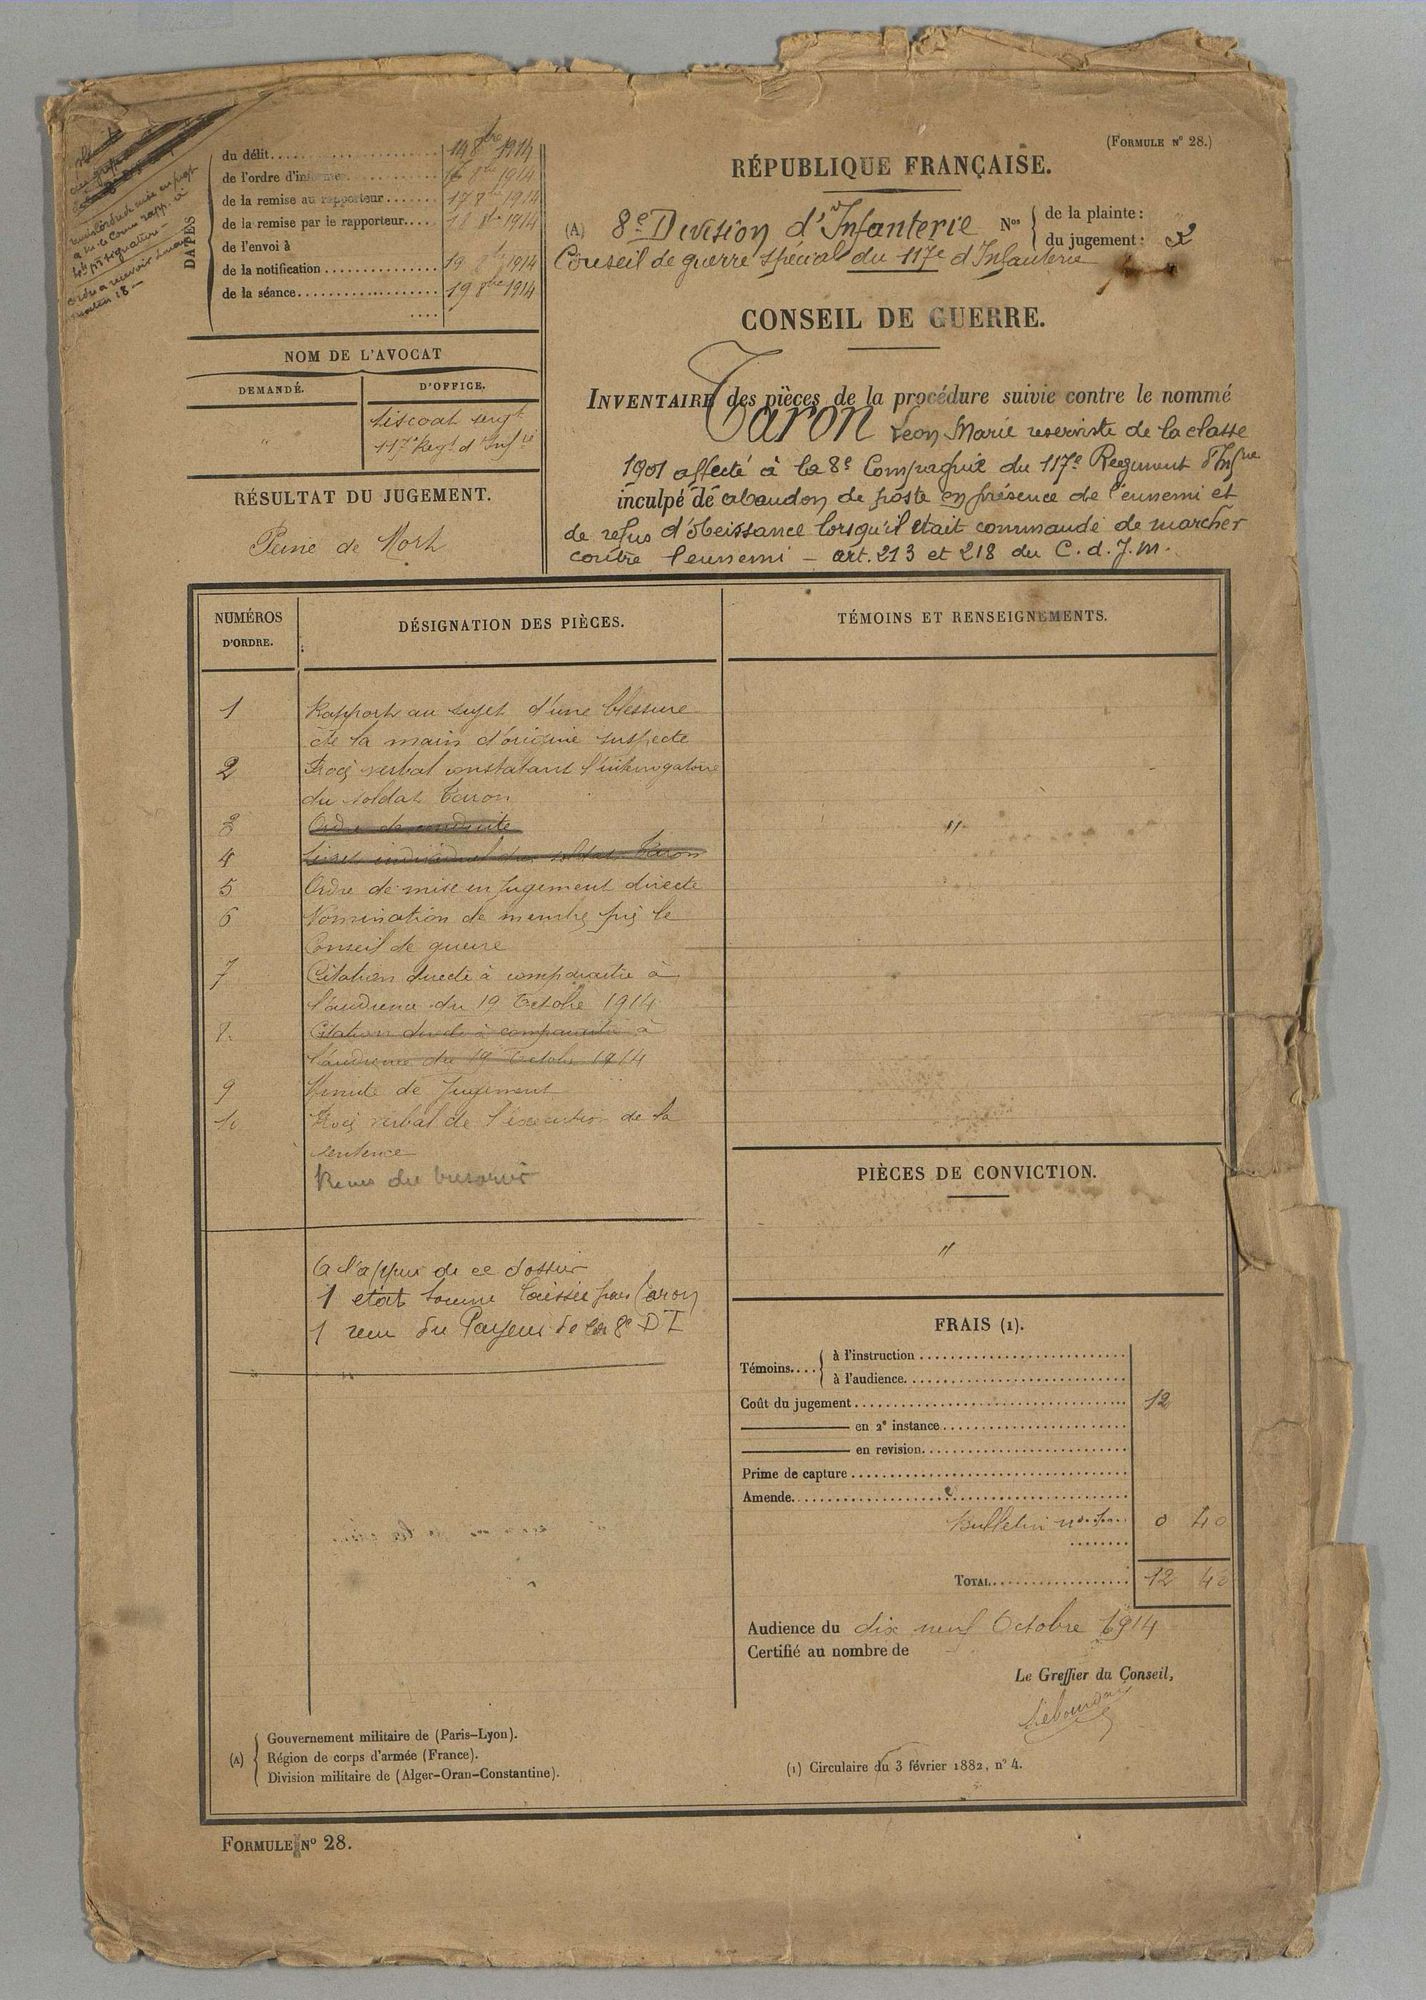 (FORMULE N° 28.)
RÉPUBLIQUE FRANÇAISE.
(A) 8e Division d'Infanterie Nos de la plainte: "
du jugement: 2
Conseil de guerre spécial du 117e d'Infanterie
CONSEIL DE GUERRE.
INVENTAIRE des pièces de la procédure suivie contre le nommé
Taron Leon Marie reserviste de la classe
1901 affecté à la 8e Compagnie du 117e Regiment d'Infrie
inculpé de abandon de poste en présence de l'ennemi et
de refus d'obeissance lorsqu'il etait commandé de marcher
contre l'ennemi - art. 213 et 218 du C. d. J. M.
DATES
du délit 14 8bre 1914
de l'ordre d'informer 16 8bre 1914
de la remise au rapporteur 17 8bre 1914
de la remise par le rapporteur 18 8bre 1914
de l'envoi à
de la notification 19 8bre 1914
de la séance 19 8bre 1914
NOM DE L'AVOCAT
DEMANDÉ. D'OFFICE.
" sergt
117e Regt d'Infrie
RÉSULTAT DU JUGEMENT.
Peine de Mort
NUMÉROS D'ORDRE.
DÉSIGNATION DES PIÈCES.
TÉMOINS ET RENSEIGNEMENTS.
1 Rapport au sujet d'une blessure
de la main d'origine suspecte
2 Procès verbal constatant l'interrogatoire
du soldat Taron
3 Ordre de conduite
4 Livret individuel du soldat Taron
5 Ordre de mise en jugement directe
6 Nomination de membres près le
Conseil de guerre
7 Citation directe à comparaitre à
l'audience du 19 Octobre 1914
8. Citation directe à comparaitre à
l'audience du 19 Octobre 1914
9 Minute de Jugement
10 Procès verbal de l'exécution de la
sentence
du
A l'appui de ce dossier
1 etat somme laissée par Taron
1 recu du Payeur de la 8e DI
"
PIÈCES DE CONVICTION.
"
FRAIS (1).
Témoins.... à l'instruction
à l'audience.
Coût du jugement 12
en 2e instance
en revision.
Prime de capture
Amende.
Bulletin 0 40
TOTAL 12 40
Audience du dix neuf Octobre 1914
Certifié au nombre de
Le Greffier du Conseil,
(A) Gouvernement militaire de (Paris-Lyon).
Région de corps d'armée (France).
Division militaire de (Alger-Oran-Constantine).
(1) Circulaire du 3 février 1882, n° 4.
FORMULE N° 28.